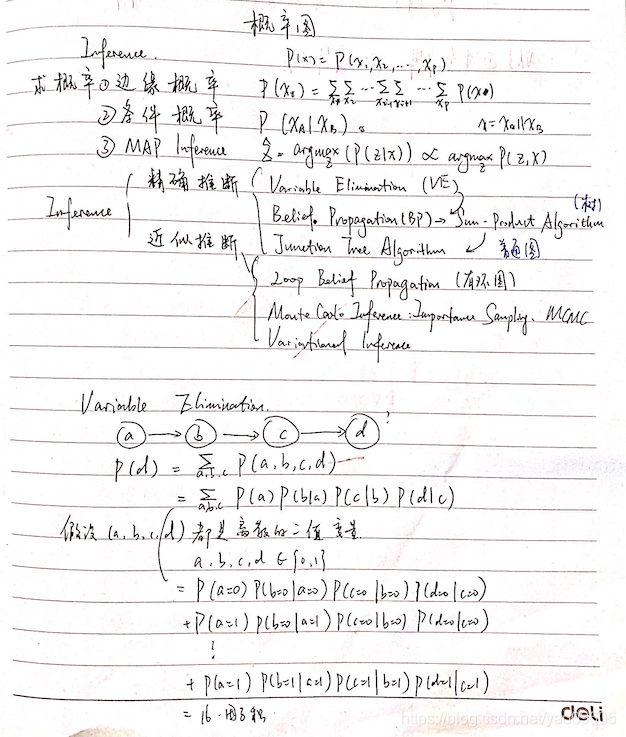 概率图
Inference. P(x) = P(x₁, x₂, ..., xₚ)
求概率 ① 边缘概率 P(xᵢ) = Σx₁ Σx₂ ... Σxᵢ₋₁ Σxᵢ₊₁ ... Σxₚ P(x)
② 条件概率 P(x_A|x_B)。 x = x_A∪x_B
③ MAP Inference ẑ = argmax_z (P(z|x)) ∝ argmax_z P(z,x)
精确推断 Variable Elimination (VE)
Inference Belief Propagation (BP) → Sum-Product Algorithm (树)
近似推断 Junction Tree Algorithm ↙ 普通图
Loop Belief Propagation (有环图)
Monte Carlo Inference: Importance Sampling. MCMC
Variational Inference
Variable Elimination.
a → b → c → d ?
P(d) = Σ_{a,b,c} P(a,b,c,d)
= Σ_{a,b,c} P(a) P(b|a) P(c|b) P(d|c)
假设 (a,b,c,d) 都是离散的二值变量
a,b,c,d ∈ {0,1}
= P(a=0) P(b=0|a=0) P(c=0|b=0) P(d=0|c=0)
+ P(a=1) P(b=0|a=1) P(c=0|b=0) P(d=0|c=0)
⋮
+ P(a=1) P(b=1|a=1) P(c=1|b=1) P(d=1|c=1)
deli